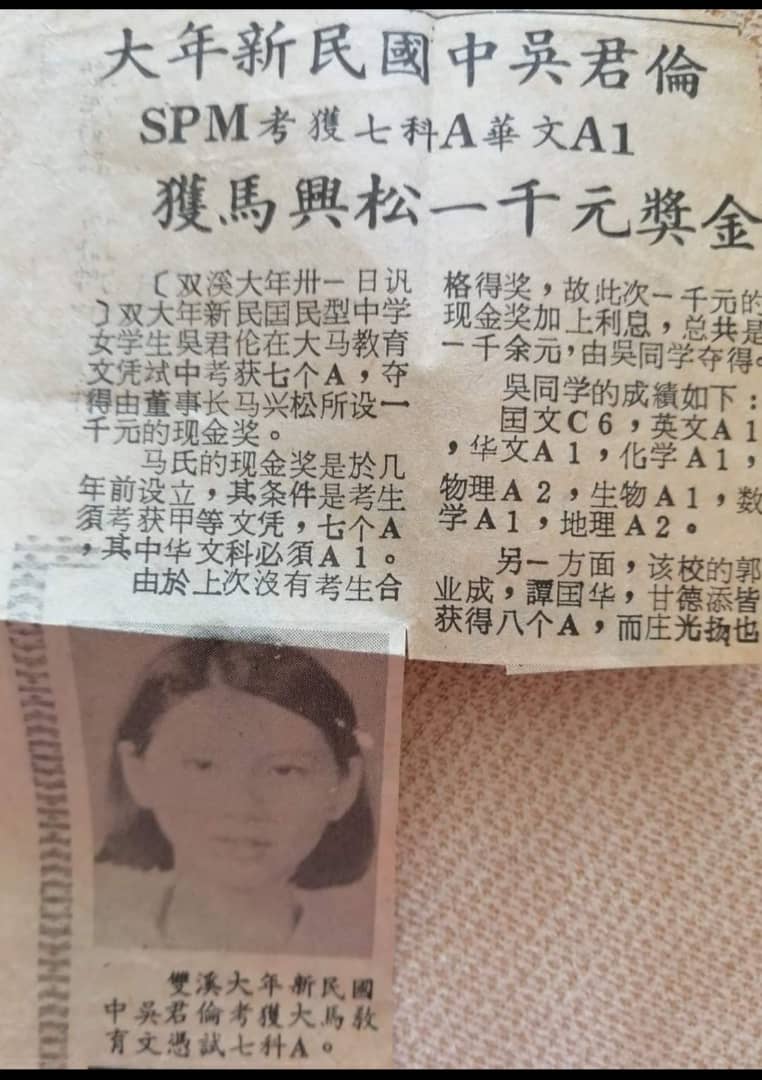 大年新民國中吳君倫
SPM考獲七科A華文A1
獲馬興松一千元獎金
〔双溪大年卅一日汎
〕双大年新民国民型中学
女学生吳君伦在大马教育
文凭斌中考获七个A，夺
得由董事长马兴松所设一
千元的现金奖。
马氏的现金奖是於几
年前设立，其条件是考生
須考获甲等文凭，七个A
，其中华文科必須A1。
由於上次沒有考生合
格得奖，故此次一千元的
现金奖加上利息，总共是
一千余元，由吳同学夺得。
吳同学的成績如下：
国文C6，英文A1
，华文A1，化学A1，
物理A2，生物A1，数
学A1，地理A2。
另一方面，该校的郭
业成，譚国华，甘德添皆
获得八个A，而庄光扬也
雙溪大年新民國
中吳君倫考獲大馬教
育文憑試七科A。